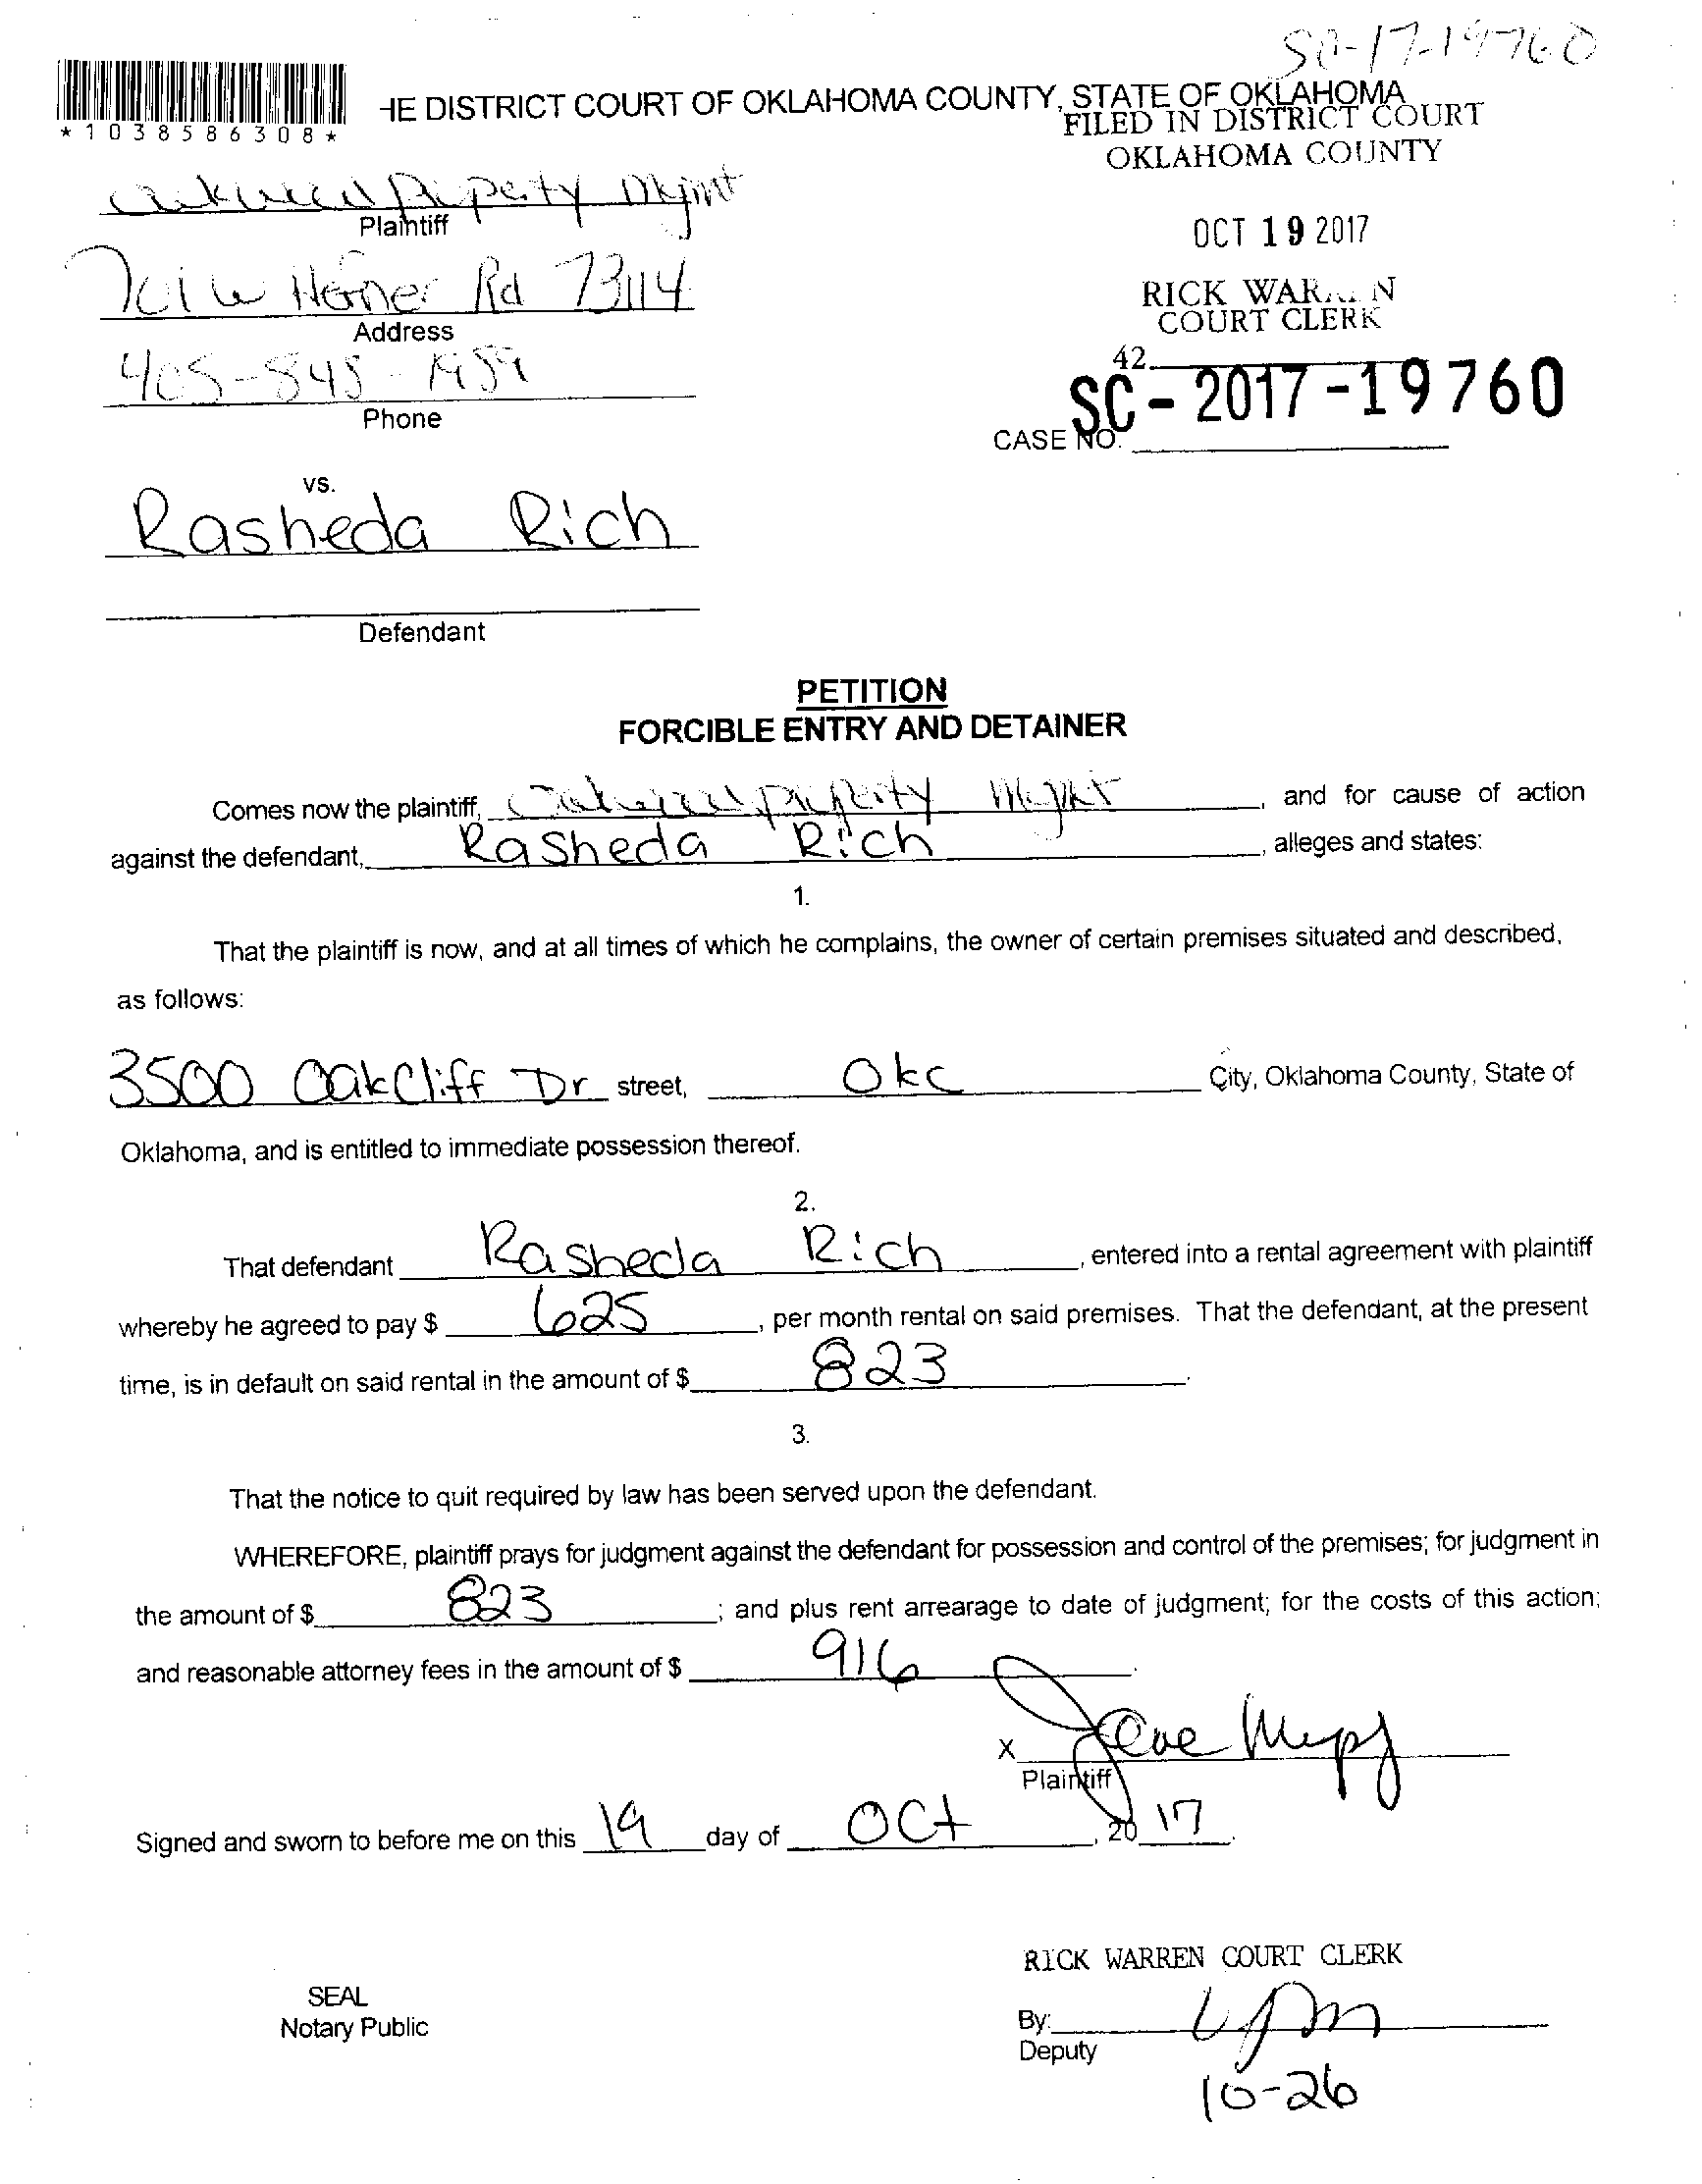 SC-17-19760
*1038586308*
HE DISTRICT COURT OF OKLAHOMA COUNTY, STATE OF OKLAHOMA
FILED IN DISTRICT COURT
OKLAHOMA COUNTY
Property Mgmt
Plaintiff
OCT 19 2017
701 W Hefner Rd 73114
Address
RICK WARREN
COURT CLERK
Phone
42
SC-2017-19760
CASE NO.
vs.
Rasheda Rich
Defendant
PETITION
FORCIBLE ENTRY AND DETAINER
Comes now the plaintiff, Property Mgmt, and for cause of action
against the defendant, Rasheda Rich, alleges and states:
1.
That the plaintiff is now, and at all times of which he complains, the owner of certain premises situated and described,
as follows:
3500 Oakcliff Dr street, Okc City, Oklahoma County, State of
Oklahoma, and is entitled to immediate possession thereof.
2.
That defendant Rasheda Rich, entered into a rental agreement with plaintiff
whereby he agreed to pay $ 625, per month rental on said premises. That the defendant, at the present
time, is in default on said rental in the amount of $ 823.
3.
That the notice to quit required by law has been served upon the defendant.
WHEREFORE, plaintiff prays for judgment against the defendant for possession and control of the premises; for judgment in
the amount of $ 823; and plus rent arrearage to date of judgment; for the costs of this action;
and reasonable attorney fees in the amount of $ 916.
X
Plaintiff
Signed and sworn to before me on this 19 day of Oct, 20 17.
RICK WARREN COURT CLERK
SEAL
Notary Public
By:
Deputy
10-26